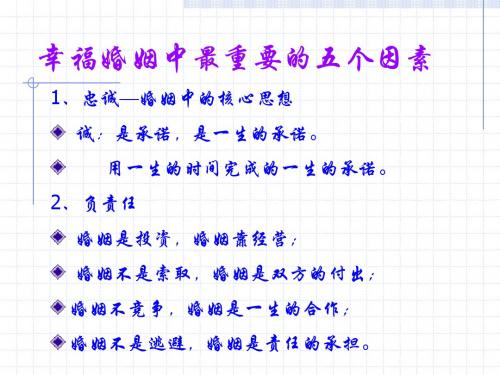 幸福婚姻中最重要的五个因素
1、忠诚—婚姻中的核心思想
诚：是承诺，是一生的承诺。
用一生的时间完成的一生的承诺。
2、负责任
婚姻是投资，婚姻靠经营；
婚姻不是索取，婚姻是双方的付出；
婚姻不竞争，婚姻是一生的合作；
婚姻不是逃避，婚姻是责任的承担。